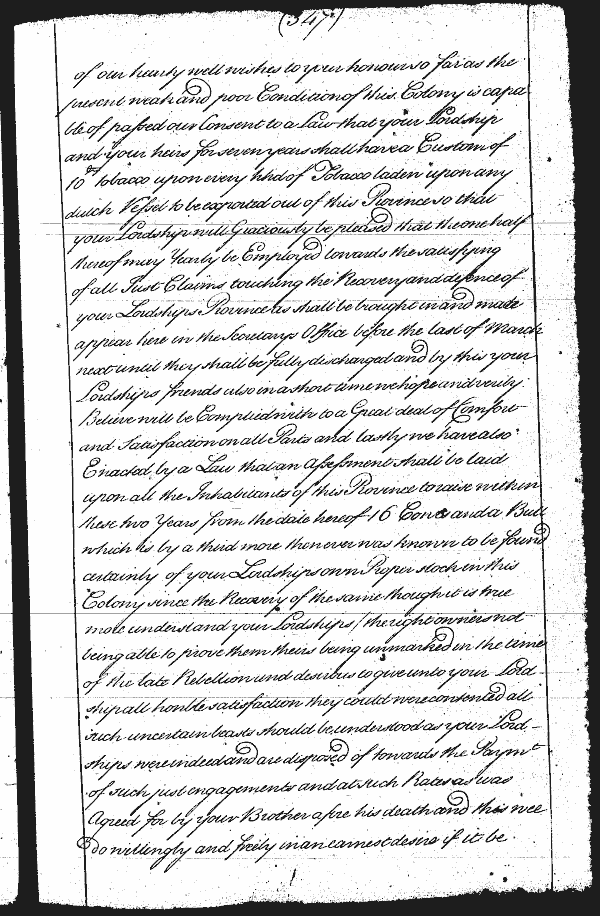 (347)
of our hearty well wishes to your honour so far as the
present weak and poor Condition of this Colony is capa
ble of passed our Consent to a Law that your Lordship
and your heirs for seven years shall have a Custom of
10s tobacco upon every hhd of Tobacco laden upon any
dutch Vessel to be exported out of this Province so that
your Lordship will Graciously be pleased that the one half
thereof may Yearly be Employed towards the satisfying
of all Just Claims touching the Recovery and defence of
your Lordships Province as shall be brought in and made
appear here in the Secretarys Office before the last of March
next until they shall be fully discharged and by this your
Lordships friends also in a short time we hope and verily
Believe will be Complied with to a Great deal of Comfort
and Satisfaction on all Parts and lastly we have also
Enacted by a Law that an Assessment shall be laid
upon all the Inhabitants of this Province to raise within
these two Years from the date hereof 16 Cows and a Bull
which is by a third more then ever was known to be found
certainly of your Lordships own Proper stock in this
Colony since the Recovery of the same though it is true
more understand your Lordships (the right owners not
being able to prove them theirs being unmarked in the time
of the late Rebellion and desirous to give unto your Lord-
ship all honble satisfaction they could were contented all
such uncertain beasts should be understood as your Lord-
ships were indeed and are disposed of towards the Paymt
of such just engagements and at such Rates as was
Agreed for by your Brother afore his death and this wee
do willingly and freely in an earnest desire if it be